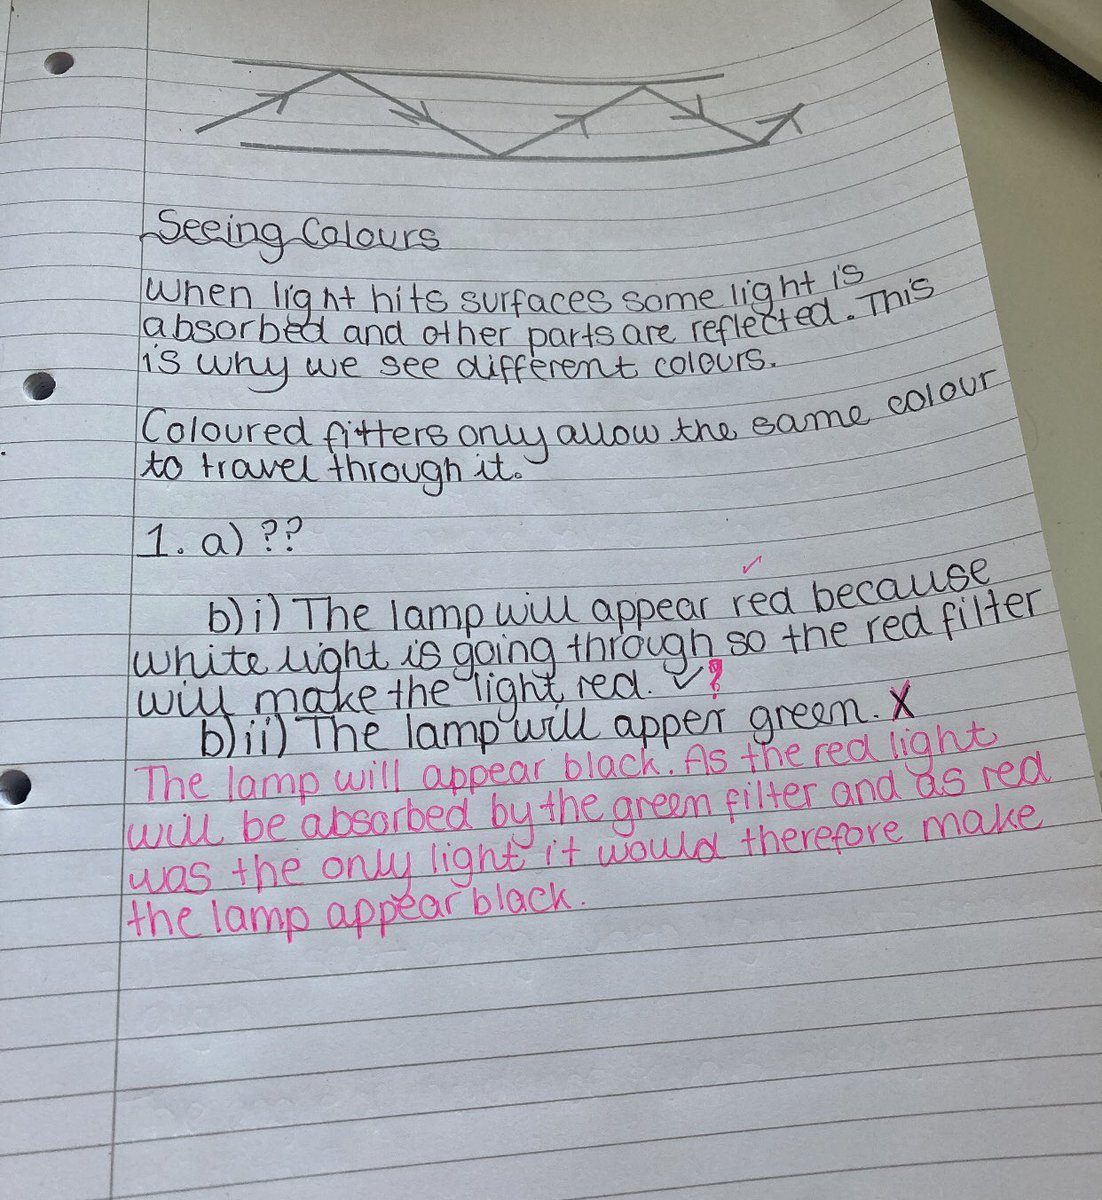 Seeing Colours
When light hits surfaces some light is
absorbed and other parts are reflected. This
is why we see different colours.
Coloured fitters only allow the same colour
to travel through it.
1. a) ??
b)i) The lamp will appear red because ✓
white light is going through so the red filter
will make the light red. ✓?
b)ii) The lamp will apper green. X
The lamp will appear black. As the red light
will be absorbed by the green filter and as red
was the only light it would therefore make
the lamp appear black.